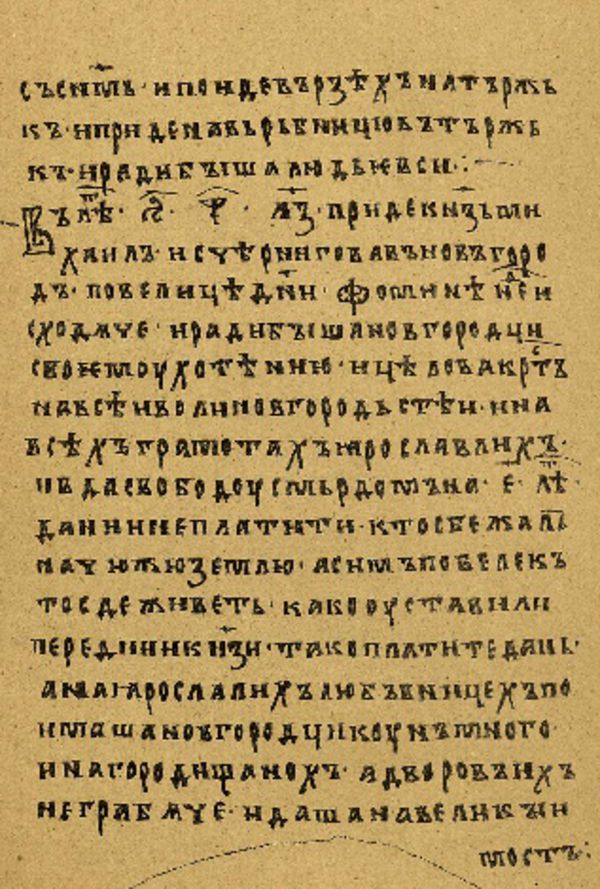 съсн҃мь · и поиде въ рзѣхъ на тържь
къ · и приде на вьрьбницю въ тържь
къ · и ради быша людье вси ⁘
Въ лѣ҃ · ҂ѕ҃ · ѱ҃ · л҃з · приде кн҃зь ми
хаилъ ис чѣрнигова въ новъгоро
дъ · по велицѣ дн҃и · ѳоминѣ н҃ед
исходѧче · и ради быша новгородци
своѥмоу хотѣнию · и цѣлова кр҃тъ
на всѣи воли новгородьстѣи · и на
всѣхъ грамотахъ ꙗрославлихъ ·
и вда свободоу смьрдомъ на · е҃ · лѣ҃
дании не платити · кто сбежалъ
на чюжю землю · а симъ повеле к
то сде живеть · како оуставили
передьнии кн҃зи · тако платите дань ·
а на ꙗрославлихъ любъвницехъ по
имаша новгородци коунъ много ·
и на городищанохъ · а дворовъ ихъ
не грабѧче · и даша на великыи
мостъ :